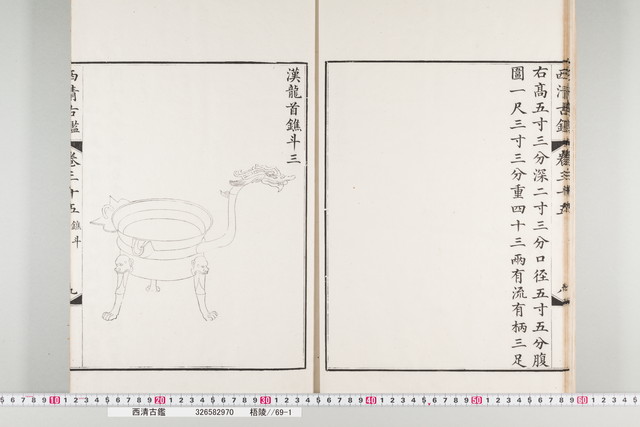 西清古鑑 卷三十五
右高五寸三分深二寸三分口徑五寸五分腹
圍一尺三寸三分重四十三兩有流有柄三足
漢龍首鐎斗三
西清古鑑 卷三十五 鐎斗 九
10 20 30 40 50 60
西清古鑑 326582970 梧陵//69-1